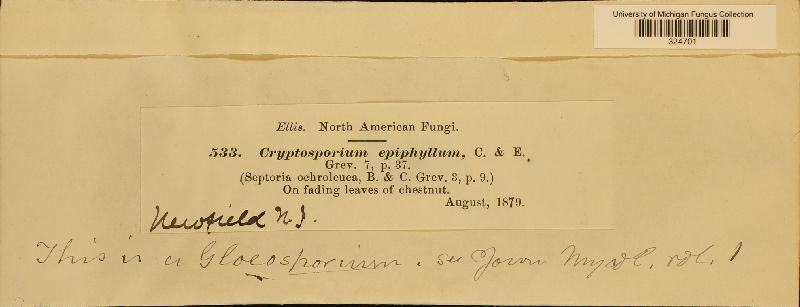 University of Michigan Fungus Collection
324701
Ellis. North American Fungi.
533. Cryptosporium epiphyllum, C. & E.
Grev. 7, p. 37.
(Septoria ochroleuca, B. & C. Grev. 3, p. 9.)
On fading leaves of chestnut.
August, 1879.
Newfield N.J.
This is a Gloeosporium. see Journ Mycol. vol. 1